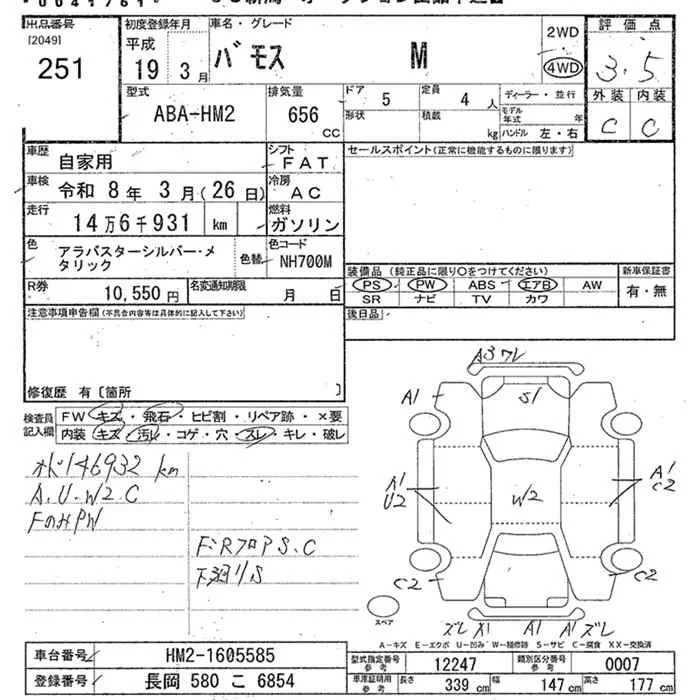 出品番号
[2049]
251
初度登録年月
平成
19 年 3 月
車名・グレード
バモス M
2WD
4WD
評価点
3.5
外装 内装
C C
型式
ABA-HM2
排気量
656
CC
ドア
5
定員
4 人
形状
積載
kg
ディーラー・並行
モデル年式 年
ハンドル 左・右
車歴
自家用
シフト
FAT
車検
令和 8年 3月(26日)
冷房
AC
走行
14万6千931 km
燃料
ガソリン
色
アラバスターシルバー・メタリック
色替
色コード
NH700M
R券
10,550 円
名変通知期限
月 日
セールスポイント(正常に機能するものに限ります)
装備品 (純正品に限り○をつけてください)
PS PW ABS エアB AW
SR ナビ TV カワ
新車保証書
有・無
後日品
注意事項申告欄(不具合内容等は具体的に記入して下さい)
修復歴 有〔箇所 〕
検査員記入欄
FW キズ・飛石・ヒビ割・リペア跡・×要
内装 キズ・汚レ・コゲ・穴・スレ・キレ・破レ
146932 km
A.U.W2 C
FのみPW
F・RフロアS.C
下廻りS
A3 ワレ
A1
S1
A1
U2
W2
A1
C2
C2
C2
ズレ X1 A1 A1 ズレ
スペア
A-キズ E-エクボ U-凹み W-補修跡 S-サビ C-腐食 XX-交換済
車台番号
HM2-1605585
登録番号
長岡 580 こ 6854
型式指定番号
参考
12247
類別区分番号
参考
0007
車庫証明用
参考
長さ 339 cm
幅 147 cm
高さ 177 cm